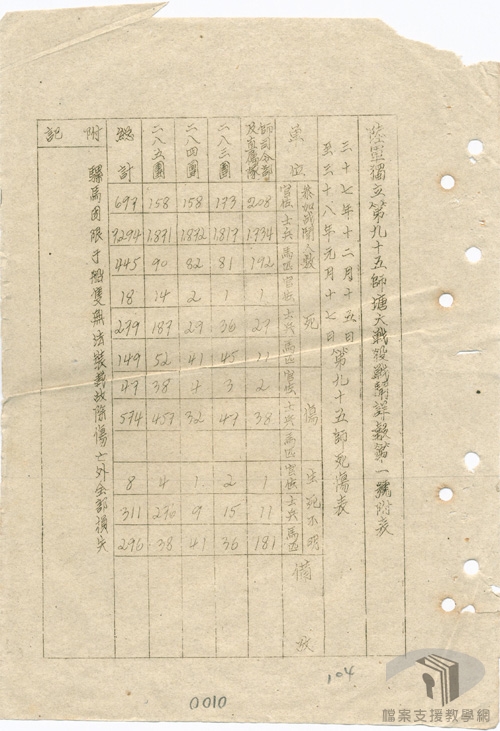 陸軍獨立第九十五師塘大戰役戰鬥詳報第一號附表
三十七年十二月十五日
至三十八年元月十七日 第九十五師死傷表
單位 參加戰鬥人數 官佐 士兵 馬匹 死 官佐 士兵 馬匹 傷 官佐 士兵 馬匹 生死不明 官佐 士兵 馬匹 備考
師司令部及直屬隊 208 1334 192 1 29 11 2 38 1 11 181
二八三團 133 1819 81 1 36 45 3 47 2 15 36
二八四團 158 1832 82 2 29 41 4 32 1 9 41
二八五團 158 1831 90 14 187 52 38 457 4 296 38
總計 697 9294 445 18 279 149 47 574 8 311 296
附記 騾馬因限于船隻無法裝載故除傷亡外全部損失
104
0010
檔案支援教學網